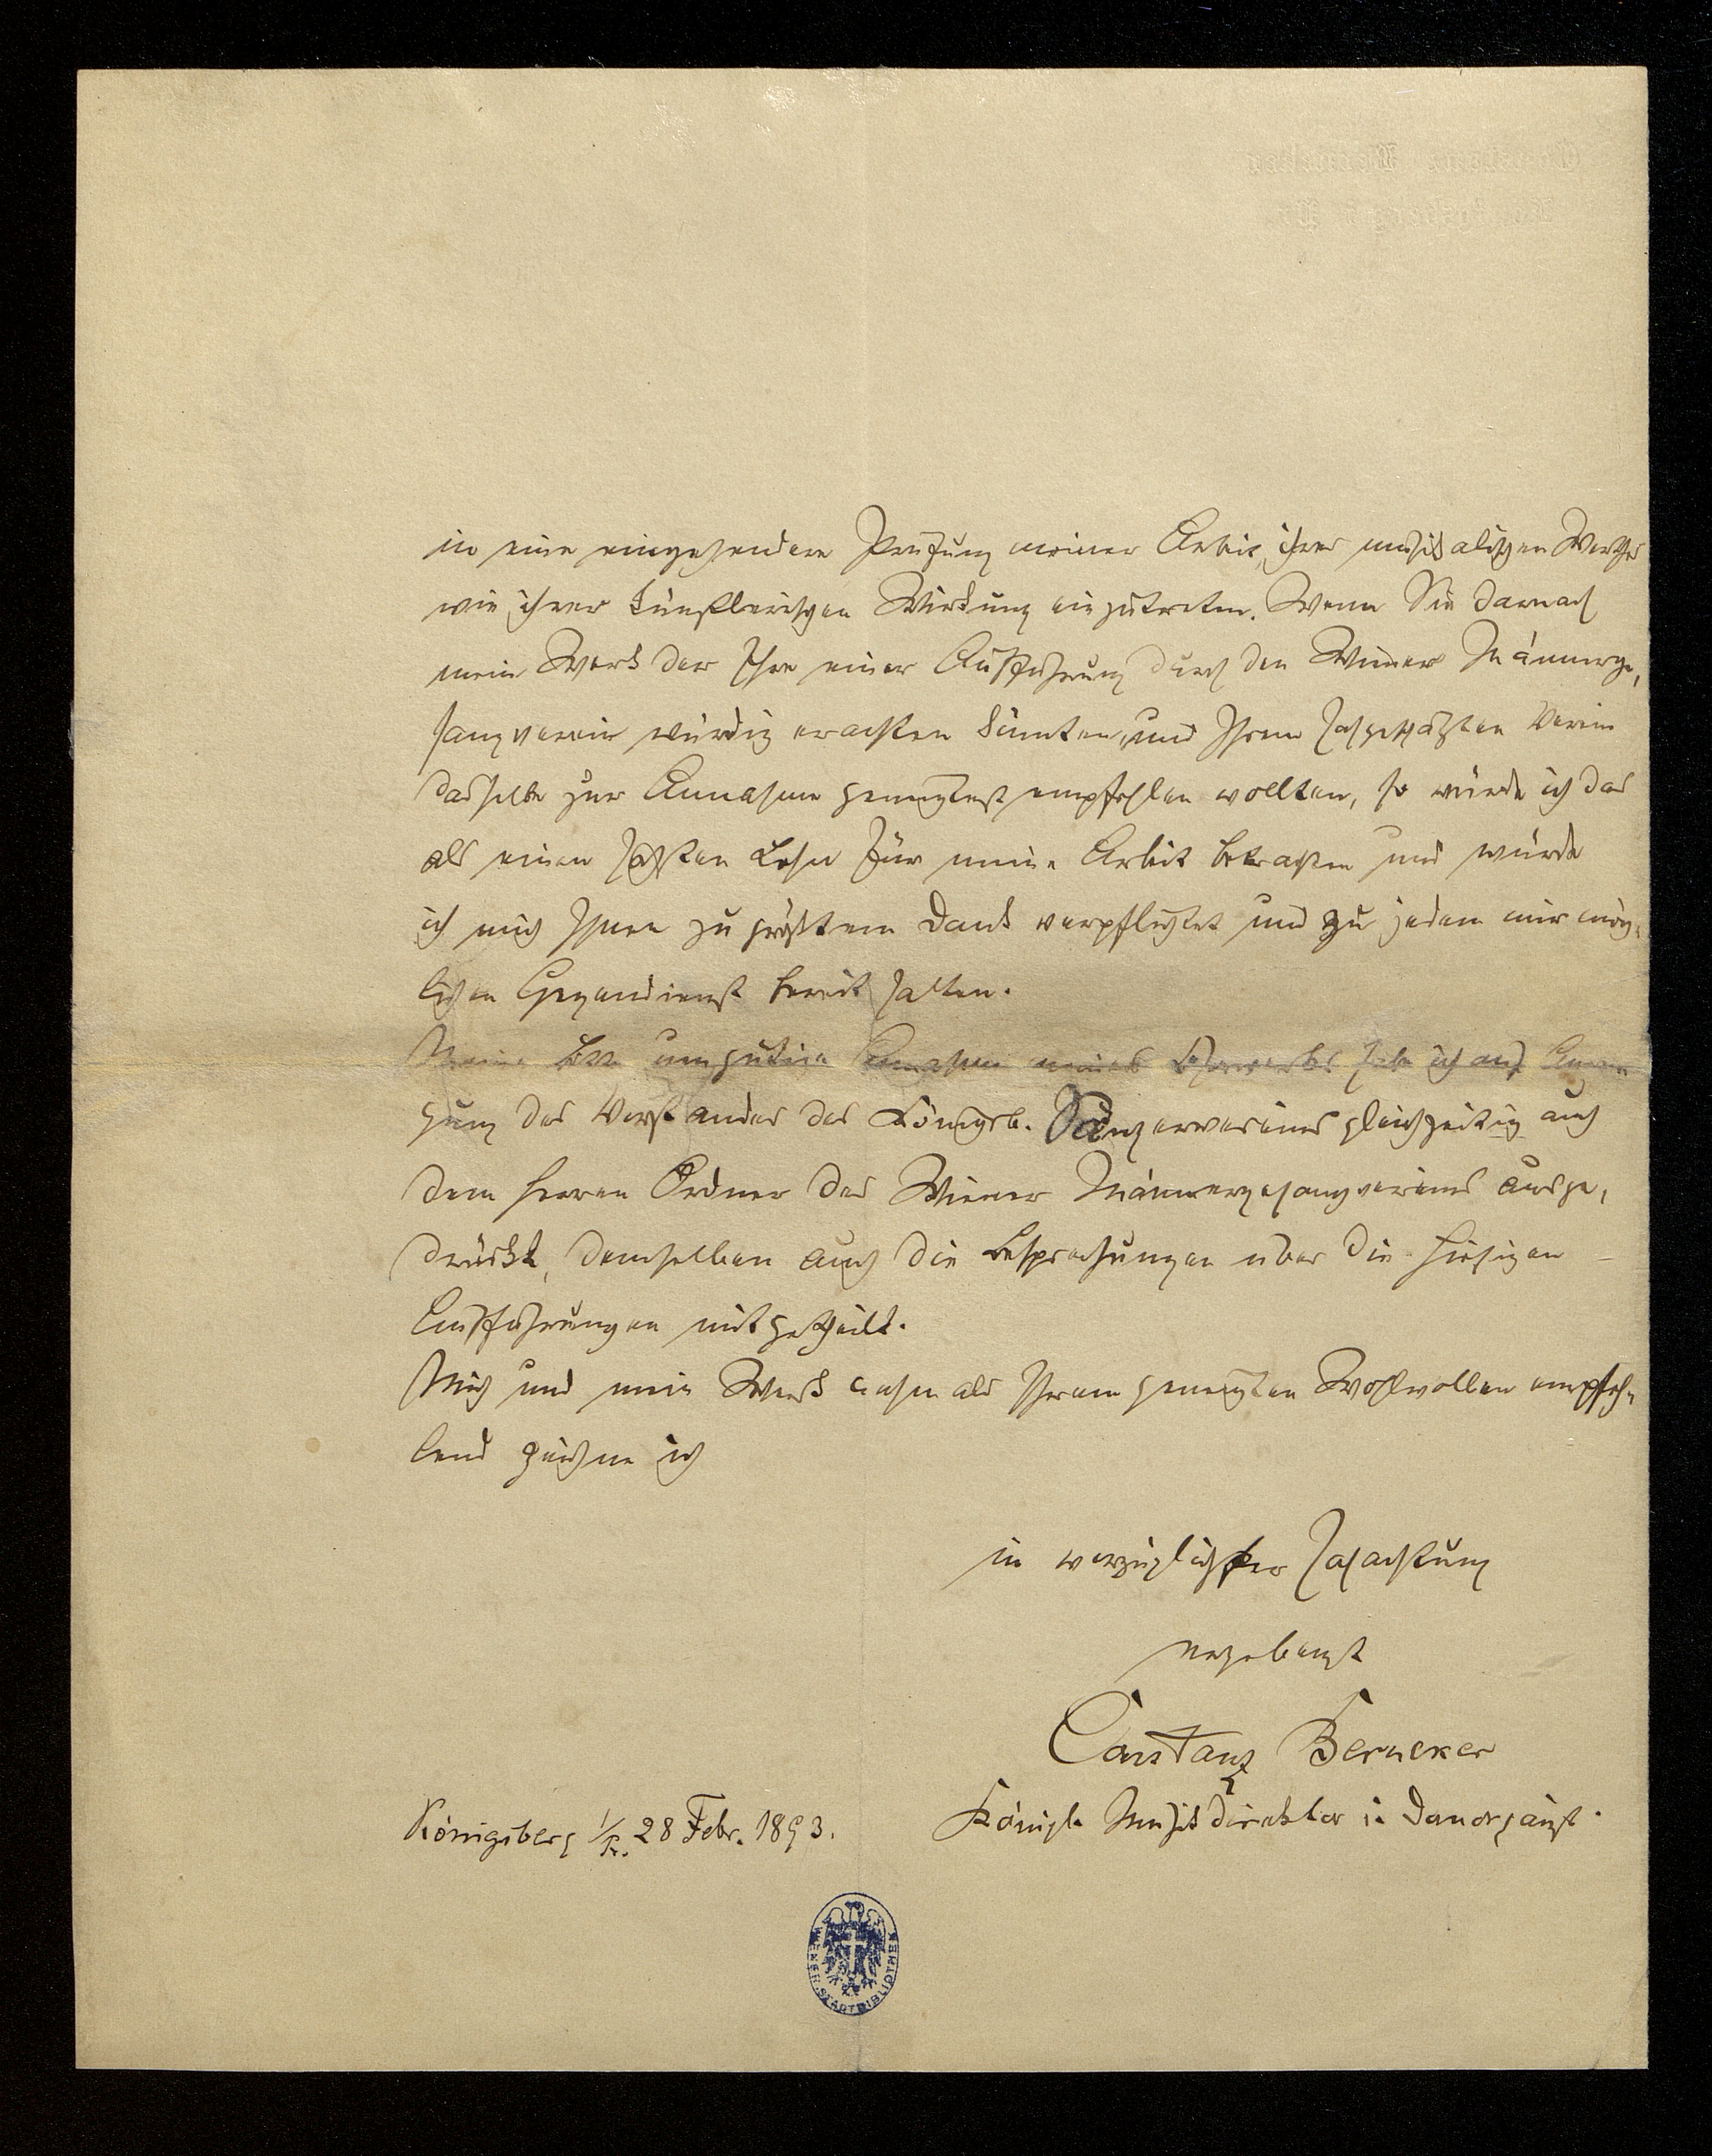 in eine eingehendere Prüfung meiner Arbeit, ihres musikalischen Werthes
wie ihrer künstlerischen Wirkung einzutreten. Wenn Sie darnach
mein Werk der Ehre einer Aufführung durch den Wiener Männerge-
sangverein würdig erachten könnten, und Ihrem hochgeschätzten Verein
dasselbe zur Annahme geneigtest empfehlen wollten, so würde ich das
als einen schönsten Lohn für meine Arbeit betrachten und würde
ich mich Ihnen zu größtem Dank verpflichtet und zu jedem mir mög-
lichen Gegendienst bereit halten.
Meine Bitte um gütige Annahme meines Chorwerkes habe ich auf Anre-
gung des Vorstandes des Königsb. Sängervereins gleichzeitig auch
dem Herren Ordner des Wiener Männergesangvereins ausge-
drückt, demselben auch die Besprechungen über die hiesigen
Aufführungen mitgetheilt.
Mich und mein Werk Ihrem geneigten Wohlwollen empfeh-
lend zeichne ich
in vorzüglichster Hochachtung
ergebenst
Constanz Berneker
Königl. Musikdirektor u. Domorganist.
Königsberg i/Pr. 28 Febr. 1893.
WIENER STADTBIBLIOTHEK